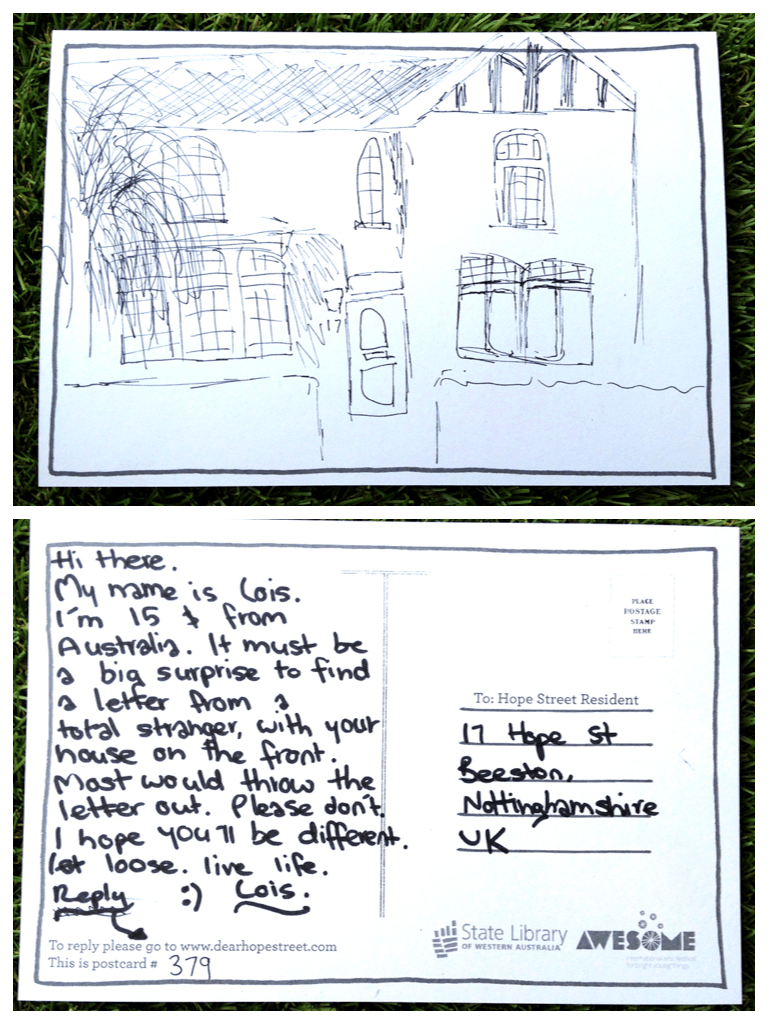 17
Hi there.
My name is Lois.
I'm 15 & from
Australia. It must be
a big surprise to find
a letter from a
total stranger, with your
house on the front.
Most would throw the
letter out. Please don't.
I hope you'll be different.
let loose. live life.
Reply :) Lois.
To reply please go to www.dearhopestreet.com
This is postcard # 379
PLACE
POSTAGE
STAMP
HERE
To: Hope Street Resident
17 Hope St
Beeston,
Nottinghamshire
UK
State Library
OF WESTERN AUSTRALIA
AWESOME